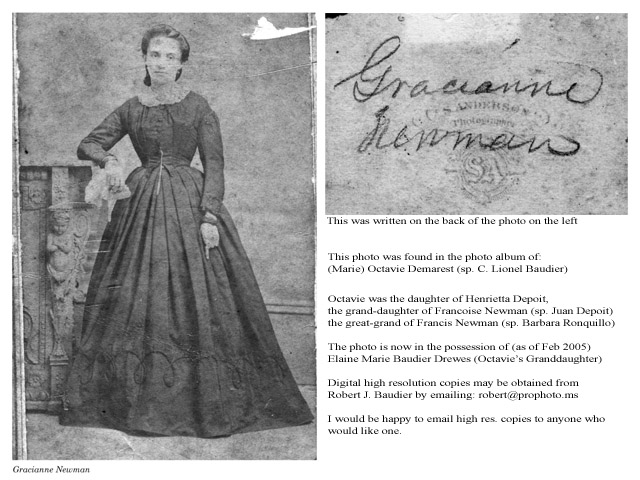 Gracianne
S. ANDERSON
Photographic
Newman
This was written on the back of the photo on the left
This photo was found in the photo album of:
(Marie) Octavie Demarest (sp. C. Lionel Baudier)
Octavie was the daughter of Henrietta Depoit,
the grand-daughter of Francoise Newman (sp. Juan Depoit)
the great-grand of Francis Newman (sp. Barbara Ronquillo)
The photo is now in the possession of (as of Feb 2005)
Elaine Marie Baudier Drewes (Octavie's Granddaughter)
Digital high resolution copies may be obtained from
Robert J. Baudier by emailing: robert@prophoto.ms
I would be happy to email high res. copies to anyone who
would like one.
Gracianne Newman